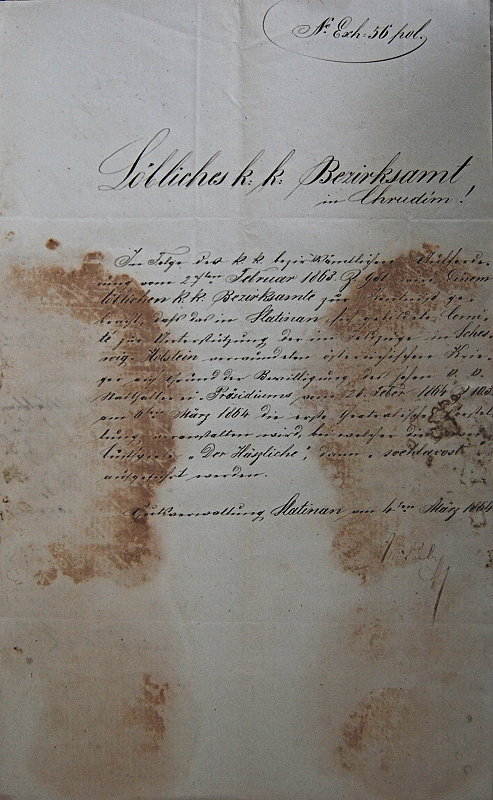 No Exh: 56 pol.
Löbliches k. k. Bezirksamt
in Chrudim!
In Folge des k. k. bezirksämtlichen
vom 27ten Februar 1863 Z wird Einem
löblichen k. k. Bezirksamte zur ge-
bracht, daß das in Slatinan sich Comi-
te zur Unterstützung der im Feldzuge in Schles-
wig-Holstein verwundeten österreichischen Krie-
ger auf Grund der Bewilligung des hohen k. k.
Statthalterei-Präsidiums vom 26. Feber 1864
am 6ten März 1864 die erste theatralische Vorstel-
lung veranstalten wird, bei welcher die
Lustspiele „Der Häßliche", dann
aufgeführt werden.
Gutsverwaltung Slatinan am 4ten März 1864